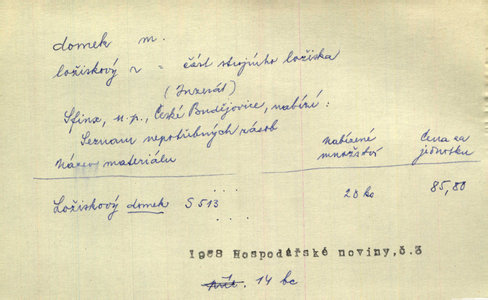 domek m.
ložiskový ~ = část strojního ložiska
(Inzerát)
Sfinx, n.p., České Budějovice, nabízí:
Seznam nepotřebných zásob
Název materiálu Nabízené množství Cena za jednotku
Ložiskový domek S 513 20 ks 85,80
1958 Hospodářské noviny,č.3
14 bc